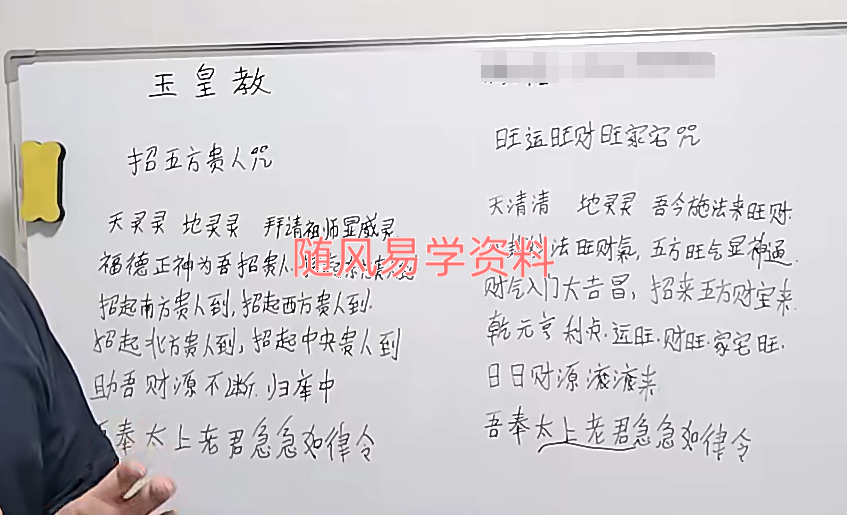 玉皇教
招五方贵人咒
天灵灵 地灵灵 拜请祖师显威灵
福德正神为吾招贵人
招起南方贵人到,招起西方贵人到.
招起北方贵人到,招起中央贵人到
助吾财源不断.归库中
吾奉太上老君急急如律令
旺运旺财旺家宅咒
天清清 地灵灵 吾今施法来旺财.
法旺财氣,五方旺气显神通.
财气入门大吉昌,招来五方财宝来.
乾元亨利贞.运旺.财旺.家宅旺.
日日财源滚滚来.
吾奉太上老君急急如律令
随风易学资料